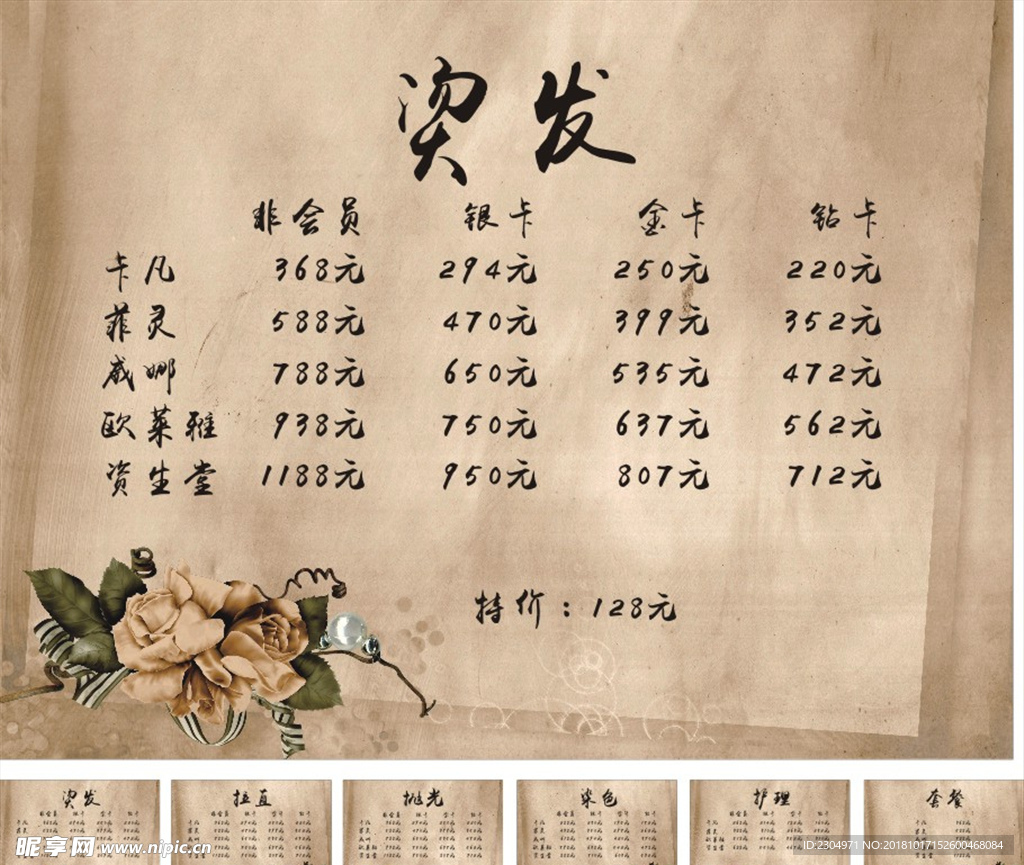 烫发
非会员 银卡 金卡 钻卡
卡凡 368元 294元 250元 220元
菲灵 588元 470元 399元 352元
威娜 788元 650元 535元 472元
欧莱雅 938元 750元 637元 562元
资生堂 1188元 950元 807元 712元
特价：128元
烫发 拉直 抛光 染色 护理 套餐
昵享网 www.nipic.cn
ID:2304971 NO:20181017152600468084